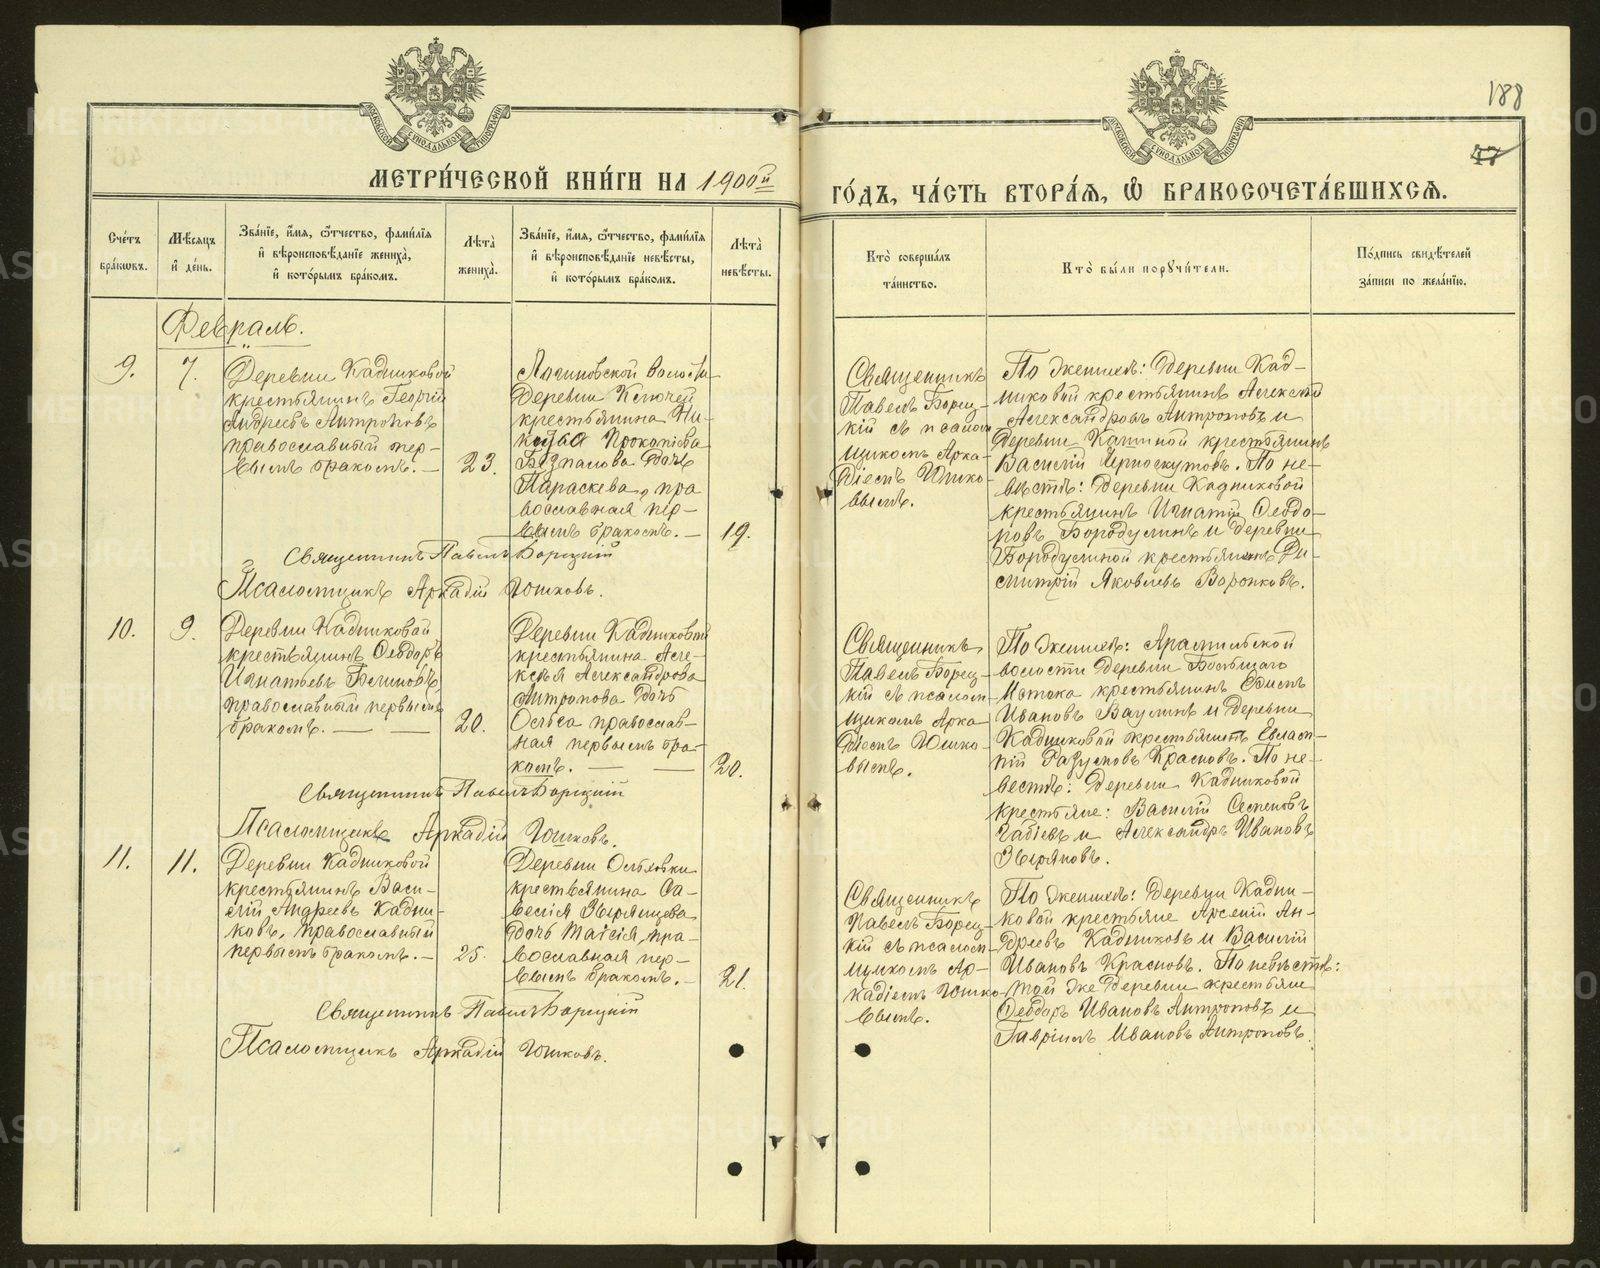 188
47
МЕТРИ́ЧЕСКОЙ КНИ́ГИ НА 1900й
ГО́ДЪ, ЧА́СТЬ ВТОРА́Ѧ, Ѽ БРАКОСОЧЕТА́ВШИХСѦ.
Сче́тъ бра́кѡвъ.
Мѣ́сяцъ и҆ де́нь.
Зва́нїе, и҆́мѧ, ѻ҆́тчество, фами́лїѧ
и҆ вѣроисповѣ́данїе жениха̀,
и҆ кото́рымъ бра́комъ.
Лѣта̀ жениха̀.
Зва́нїе, и҆́мѧ, ѻ҆́тчество, фами́лїѧ
и҆ вѣроисповѣ́данїе невѣ́сты,
и҆ кото́рымъ бра́комъ.
Лѣта̀ невѣ́сты.
Кто̀ соверша́лъ
та́инство.
Кто̀ бы́ли поручи́тели.
По́дпись свидѣ́телей
за́писи по жела́нїю.
Февраль.
9.
7.
Деревни Кадниковой
крестьянинъ Георгій
Андреевъ Антроповъ
православный пер-
вымъ бракомъ. —
23.
волости
Деревни Ключей
крестьянина Ни-
Прокопіева
дочь
Параскева, пра
вославная пер-
вымъ бракомъ. —
19.
Священникъ
Павелъ Борец-
кій съ псалом
щикомъ Арка-
діемъ Юшко-
вымъ.
По женихѣ: Деревни Кад-
никовой крестьянинъ Алексѣй
Александровъ Антроповъ и
Деревни крестьянинъ
Василій Черноскутовъ. По не-
вѣстѣ: Деревни Кадниковой
крестьянинъ Игнатій Ѳеодо-
ровъ Бородулинъ и деревни
Бородулиной крестьянинъ Ди-
митрій Яковлевъ Воронковъ.
Священникъ Павелъ Борецкій
Псаломщикъ Аркадій Юшковъ.
10.
9.
Деревни Кадниковой
крестьянинъ Ѳеодоръ
Игнатьевъ Блиновъ,
православный первымъ
бракомъ. — —
20.
Деревни Кадниковой
крестьянина Але-
ксѣя Александрова
Антропова дочь
Ольга православ-
ная первымъ бра-
комъ. — —
20.
Священникъ
Павелъ Борец-
кій съ псалом-
щикомъ Арка
діемъ Юшко-
вымъ.
По женихѣ: Арамильской
волости деревни Большаго
Истока крестьянинъ
Ивановъ Ваулинъ и деревни
Кадниковой крестьянинъ Евлам-
пій Красновъ. По не-
вестѣ: Деревни Кадниковой
крестьяне: Василій Семеновъ
и Александръ Ивановъ
Зыряновъ.
Священникъ Павелъ Борецкій
Псаломщикъ Аркадій Юшковъ.
11.
11.
Деревни Кадниковой
крестьянинъ Васи-
лій Андреевъ Кадни-
ковъ, православный
первымъ бракомъ. —
25.
Деревни Ольховки
крестьянина Са-
велія Зырянцева
дочь Таісія, пра-
вославная пер-
вымъ бракомъ. —
21.
Священникъ
Павелъ Борец-
кій съ псалом-
щикомъ Ар-
кадіемъ Юшко-
вымъ.
По женихѣ: Деревни Кадни-
ковой крестьяне Арсеній Ан-
дреевъ Кадниковъ и Василій
Ивановъ Красновъ. По невѣстѣ:
той же деревни крестьяне
Ѳеодоръ Ивановъ Антроповъ и
Гавріилъ Ивановъ Антроповъ.
Священникъ Павелъ Борецкій
Псаломщикъ Аркадій Юшковъ.